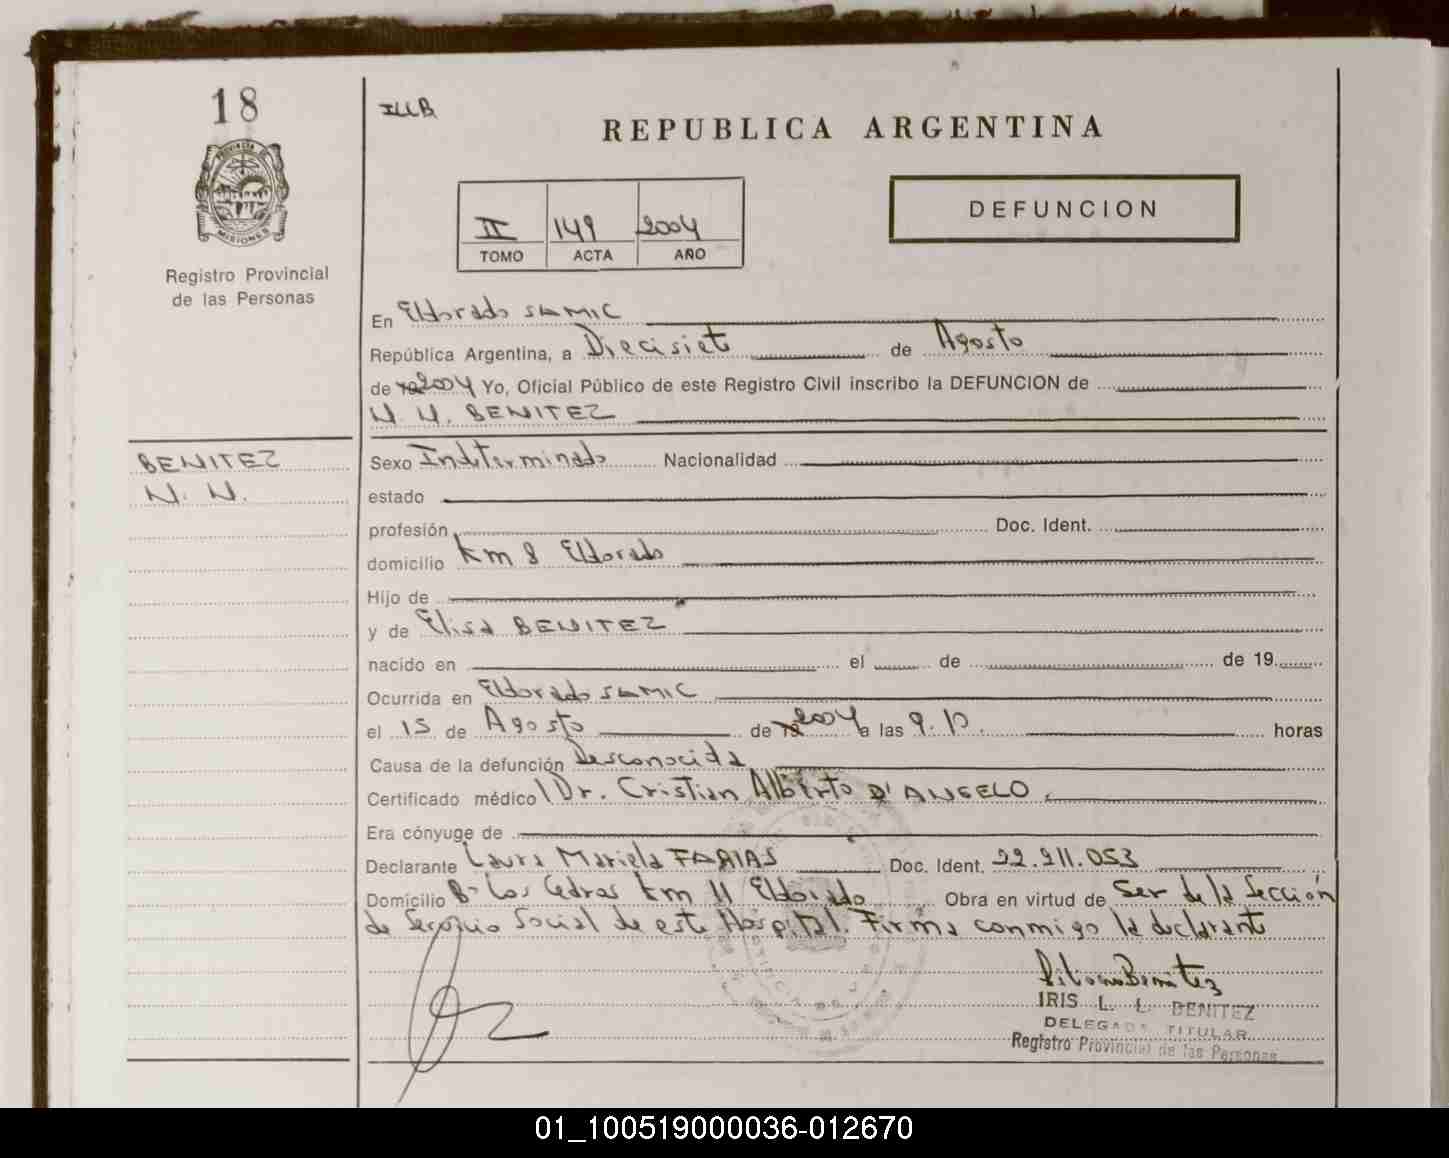 18
ILLB
REPUBLICA ARGENTINA
PROVINCIA DE
MISIONES
DEFUNCION
II 149 2004
TOMO ACTA AÑO
Registro Provincial
de las Personas
En Eldorado SAMIC
República Argentina, a Diecisiete de Agosto
de 19 2004 Yo, Oficial Público de este Registro Civil inscribo la DEFUNCION de
N. N. BENITEZ
BENITEZ
N. N.
Sexo Indeterminado Nacionalidad
estado
profesión Doc. Ident.
domicilio Km 8 Eldorado
Hijo de
y de Elisa BENITEZ
nacido en el de de 19
Ocurrida en Eldorado SAMIC
el 15 de Agosto de 19 2004 a las 9.10. horas
Causa de la defunción Desconocida
Certificado médico Dr. Cristian Alberto D'ANGELO.
Era cónyuge de
Declarante Laura Mariela FARIAS Doc. Ident. 22.211.053
Domicilio Bº Los Cedros Km 11 Eldorado Obra en virtud de Ser de la Sección
de Servicio Social de este Hospital. Firma conmigo la declarante
IRIS L. L. BENITEZ
DELEGADA TITULAR
Registro Provincial de las Personas
01_100519000036-012670